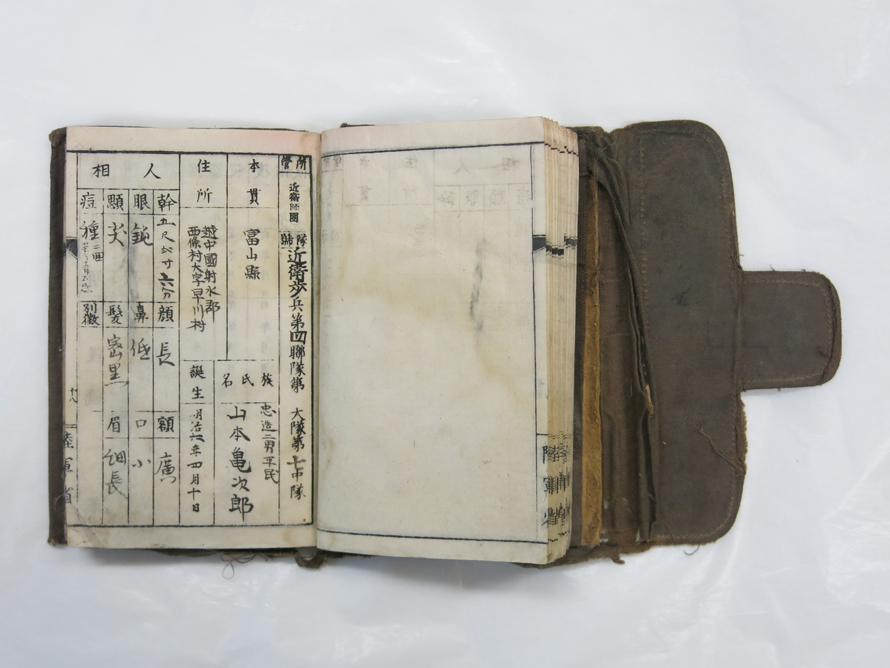 所管
近衛師團
隊號
近衛歩兵第四聯隊第 大隊第七中隊
本貫
富山縣
族氏名
忠造二男平民
山本亀次郎
住所
越中國射水郡
西條村大字早川村
誕生
明治 年四月十日
人相
幹 五尺 寸六分
顔 長
額 廣
眼 鋭
鼻 低
口 小
顋 尖
髪 密黒
眉 細長
痘 種
別徴
陸軍省
陸軍省